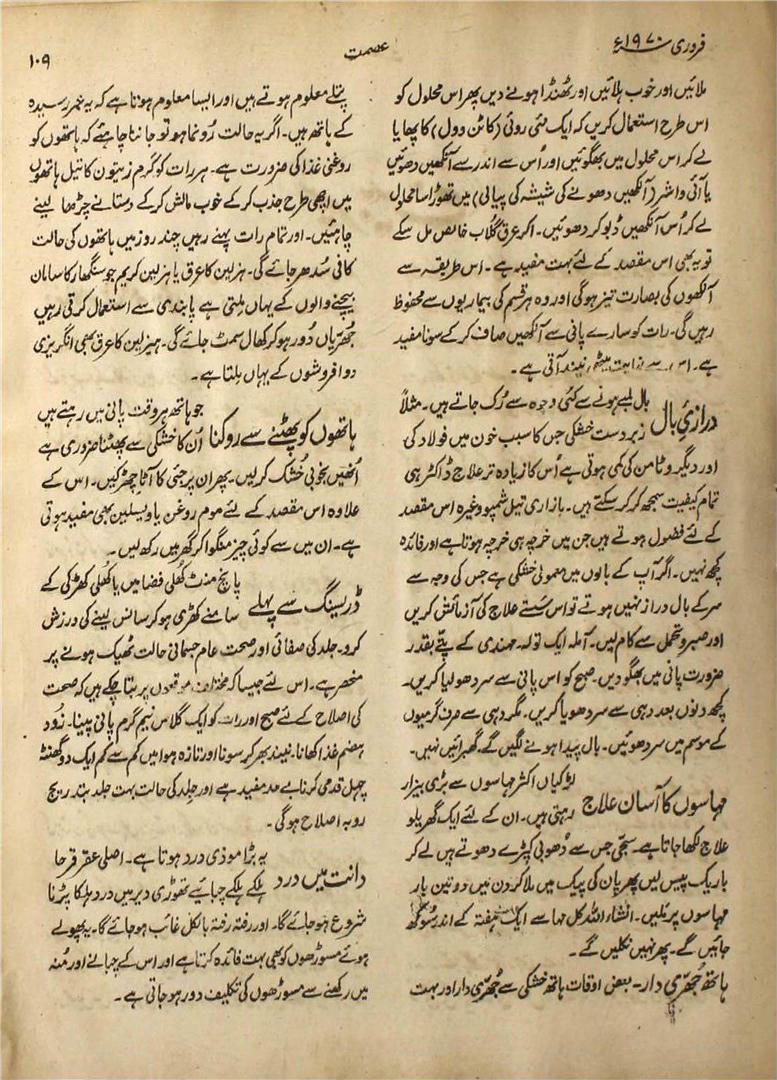 فروری ۱۹۷۰ء
عصمت
۱۰۹
ملائیں اور خوب ہلائیں اور ٹھنڈا ہونے دیں پھر اس محلول کو
اس طرح استعمال کریں کہ ایک نئی روئی (کاٹن وول) کا پھایا
لے کر اس محلول میں بھگوئیں اور اُس سے اندر سے آنکھیں دھوئیں
یا آئی واشر (آنکھیں دھونے کی شیشہ کی پیالی) میں تھوڑا سا محلول
لے کر اُس آنکھیں ڈبو کر دھوئیں۔ اگر عرق گلاب خالص مل سکے
تو یہ بھی اس مقصد کے لئے بہت مفید ہے۔ اس طریقہ سے
آنکھوں کی بصارت تیز ہوگی اور وہ ہر قسم کی بیماریوں سے محفوظ
رہیں گی۔ رات کو سارے پانی سے آنکھیں صاف کر کے سونا مفید
ہے۔ اس سے نہایت میٹھی نیند آتی ہے۔
درازئ بال بال لمبے ہونے سے کئی وجوہ سے رُک جاتے ہیں۔ مثلاً
زبردست خشکی جس کا سبب خون میں فولاد کی
اور دیگر وٹامن کی کمی ہوتی ہے اُس کا زیادہ تر علاج ڈاکٹر ہی
تمام کیفیت سمجھ کر کر سکتے ہیں۔ بازاری تیل شمپو وغیرہ اس مقصد
کے لئے فضول ہوتے ہیں جن میں خرچہ ہی خرچہ ہوتا ہے اور فائدہ
کچھ نہیں۔ اگر آپ کے بالوں میں معمولی خشکی ہے جس کی وجہ سے
سر کے بال دراز نہیں ہوتے تو اس سَستے علاج کی آزمائش کریں
اور صبر و تحمل سے کام لیں۔ آملہ ایک تولہ۔ مہندی کے پتّے بقدر
ضرورت پانی میں بھگو دیں۔ صبح کو اس پانی سے سر دھو لیا کریں۔
کچھ دنوں بعد دہی سے سر دھویا کریں۔ مگر دہی سے صرف گرمیوں
کے موسم میں سر دھوئیں۔ بال پیدا ہونے لگیں گے۔ گھبرائیں نہیں۔
مہاسوں کا آسان علاج لڑکیاں اکثر مہاسوں سے بڑی بیزار
رہتی ہیں۔ ان کے لئے ایک گھریلو
علاج لکھا جاتا ہے۔ سجّی جس سے دُھوبی کپڑے دھوتے ہیں لے کر
باریک پیس لیں پھر پان کی پیک میں ملا کر دن میں دو تین بار
مہاسوں پر ملیں۔ انشاء اللہ کل مہاسے ایک ہفتہ کے اندر سُوکھ
جائیں گے۔ پھر نہیں نکلیں گے۔
ہاتھ جُھرّی دار۔ بعض اوقات ہاتھ خشکی سے جُھرّی دار اور بہت
پتلے معلوم ہوتے ہیں اور ایسا معلوم ہوتا ہے کہ یہ عمر رسیدہ
کے ہاتھ ہیں۔ اگر یہ حالت رُونما ہو تو جاننا چاہئے کہ ہاتھوں کو
روغنی غذا کی ضرورت ہے۔ ہر رات کو گرم زیتون کا تیل ہاتھوں
میں اچھی طرح جذب کر کے خوب مالش کر کے دستانے چڑھا لینے
چاہئیں۔ اور تمام رات پہنے رہیں چند روز میں ہاتھوں کی حالت
کافی سُدھر جائے گی۔ ہزلین کا عرق یا ہزلین کریم جو سنگھار کا سامان
بیچنے والوں کے یہاں ملتی ہے پابندی سے استعمال کرتی رہیں
جُھرّیاں دُور ہو کر کھال سمٹ جائے گی۔ ہیزلین کا عرق بھی انگریزی
دوا فروشوں کے یہاں ملتا ہے۔
ہاتھوں کو پھٹنے سے روکنا جو ہاتھ ہر وقت پانی میں رہتے ہیں
اُن کا خشکی سے پھٹنا ضروری ہے
اُنھیں بخوبی خُشک کر لیں۔ پھر ان پر جئی کا آٹا چھڑکیں۔ اس کے
علاوہ اس مقصد کے لئے موم روغن یا ویسلین بھی مفید ہوتی
ہے۔ ان میں سے کوئی چیز منگوا کر گھر میں رکھ لیں۔
ڈریسنگ سے پہلے پانچ منٹ کُھلی فضا میں یا کھُلی کھڑکی کے
سامنے کھڑی ہو کر سانس لینے کی ورزش
کرو۔ جلد کی صفائی اور صحت عام جسمانی حالت ٹھیک ہونے پر
منحصر ہے۔ اس لئے جیسا کہ مختلف موقعوں پر بتا چکے ہیں کہ صحت
کی اصلاح کے لئے صبح اور رات کو ایک گلاس نیم گرم پانی پینا۔ زُود
ہضم غذا کھانا۔ نیند بھر کر سونا اور تازہ ہوا میں کم سے کم ایک دو گھنٹہ
چہل قدمی کرنا بے حد مفید ہے اور جلد کی حالت بہت جلد بتدریج
روبہ اصلاح ہوگی۔
دانت میں درد یہ بڑا موذی درد ہوتا ہے۔ اصلی عقر قرحا
ہلکے ہلکے چبائیے تھوڑی دیر میں درد ہلکا پڑنا
شروع ہو جائے گا۔ اور رفتہ رفتہ بالکل غائب ہو جائے گا۔ یہ پھولے
ہوئے مسوڑھوں کو بھی بہت فائدہ کرتا ہے اور اس کے چبانے اور مُنہ
میں رکھنے سے مسوڑھوں کی تکلیف دور ہو جاتی ہے۔